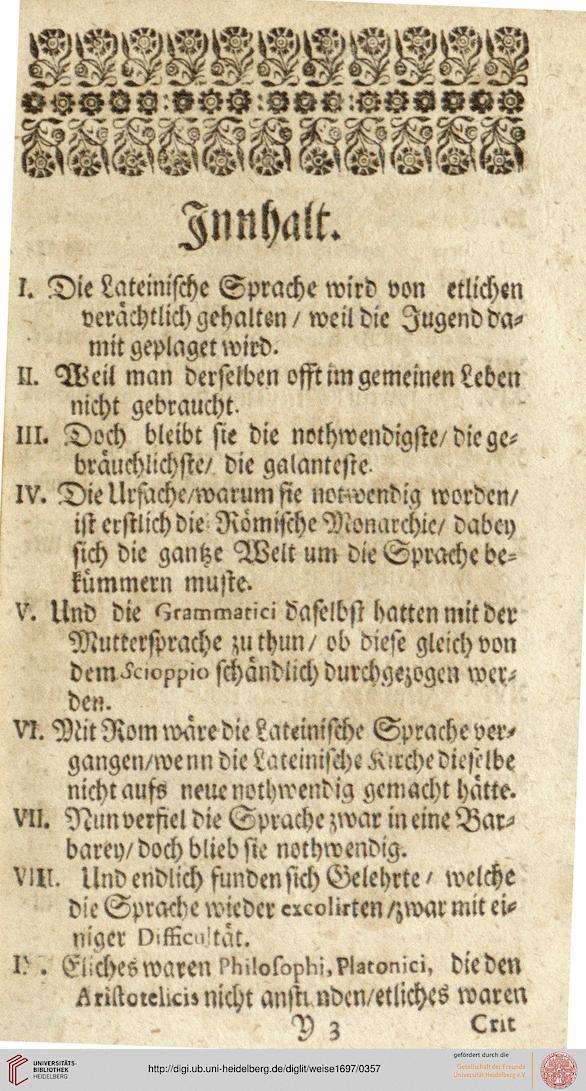 Innhalt.
I. Die Lateinische Sprache wird von etlichen
verächtlich gehalten / weil die Jugend da-
mit geplaget wird.
II. Weil man derselben offt im gemeinen Leben
nicht gebraucht.
III. Doch bleibt sie die nothwendigste/ die ge-
bräuchlichste/ die galanteste.
IV. Die Ursache/warum sie notwendig worden/
ist erstlich die Römische Monarchie/ dabey
sich die gantze Welt um die Sprache be-
kümmern muste.
V. Und die Grammatici daselbst hatten mit der
Muttersprache zu thun / ob diese gleich von
dem Scioppio schändlich durchgezogen wer-
den.
VI. Mit Rom wäre die Lateinische Sprache ver-
gangen/wenn die Lateinische Kirche dieselbe
nicht aufs neue nothwendig gemacht hätte.
VII. Nun verfiel die Sprache zwar in eine Bar-
barey/ doch blieb sie nothwendig.
VIII. Und endlich funden sich Gelehrte / welche
die Sprache wieder excolirten /zwar mit ei-
niger Difficultät.
IX. Etliches waren Philosophi, Platonici, die den
Aristotelicis nicht anstunden/etliches waren
Y 3 Crit
UNIVERSITÄTS-
BIBLIOTHEK
HEIDELBERG
http://digi.ub.uni-heidelberg.de/diglit/weise1697/0357
gefördert durch die
Gesellschaft der Freunde
Universität Heidelberg e.V.